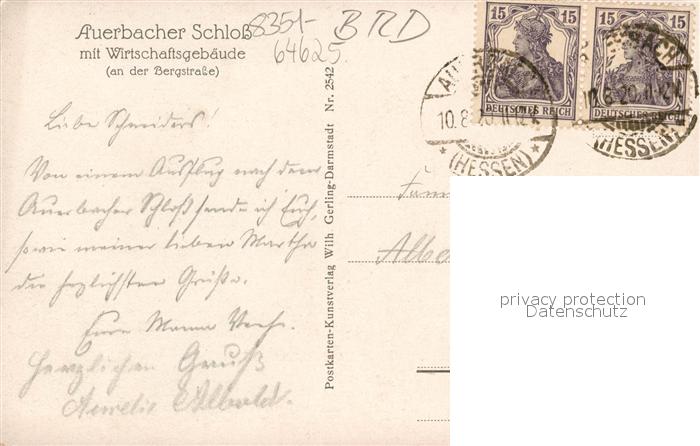 Auerbacher Schloß
mit Wirtschaftsgebäude
(an der Bergstraße)
8351-
64625.
BRD
15 15 15
DEUTSCHES REICH
DEUTSCHES REICH
(HESSEN)
10.8.20.11-12
(HESSEN)
Liebe Schneiders!
Von einem Ausflug nach dem
Auerbacher Schloß sende ich Euch,
sowie meiner lieben Martha
die herzlichsten Grüße.
Eure
Herzlichen Gruß
Aurelie
Postkarten-Kunstverlag Wilh Gerling-Darmstadt Nr. 2542
Fam
Albe
privacy protection
Datenschutz